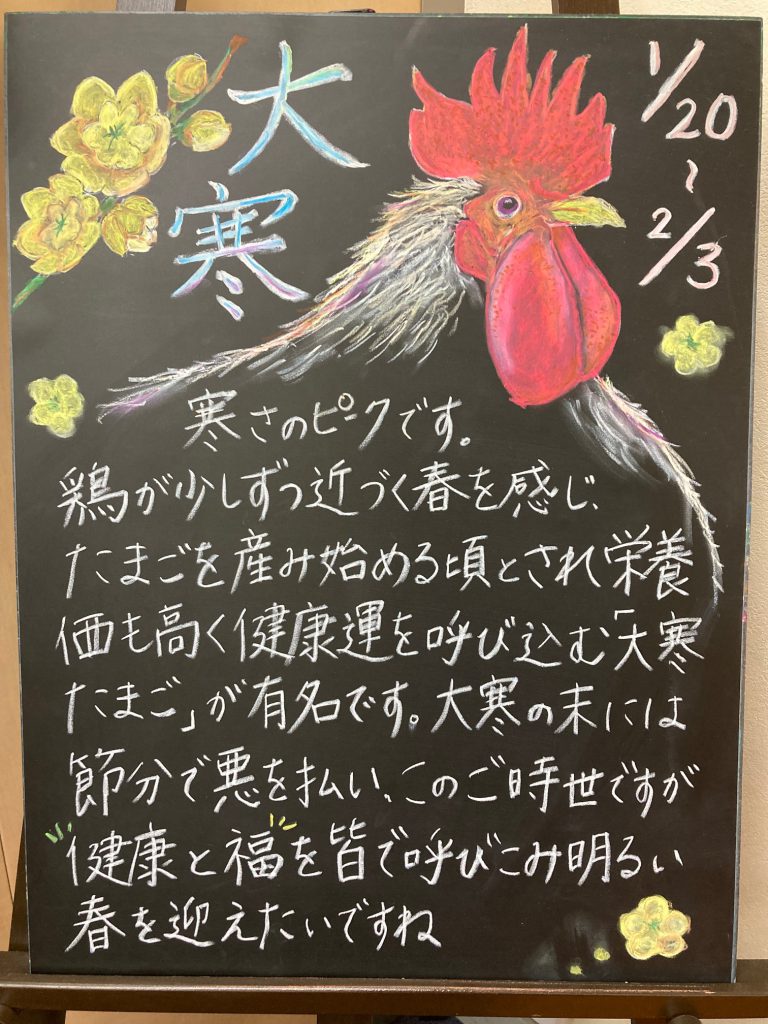 大寒
1/20
~
2/3
寒さのピークです。
鶏が少しずつ近づく春を感じ、
たまごを産み始める頃とされ栄養
価も高く健康運を呼び込む「大寒
たまご」が有名です。大寒の末には
節分で悪を払い、このご時世ですが
健康と福を皆で呼びこみ明るい
春を迎えたいですね